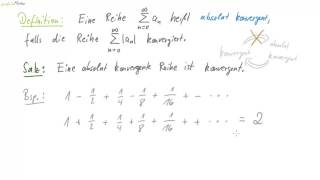 Definition: Eine Reihe ∑_{n=0}^{∞} a_n heißt absolut konvergent,
falls die Reihe ∑_{n=0}^{∞} |a_n| konvergiert.
konvergent absolut konvergent
Satz: Eine absolut konvergente Reihe ist konvergent.
Bsp.: 1 - 1/2 + 1/4 - 1/8 + 1/16 + - ...
1 + 1/2 + 1/4 + 1/8 + 1/16 + + ... = 2